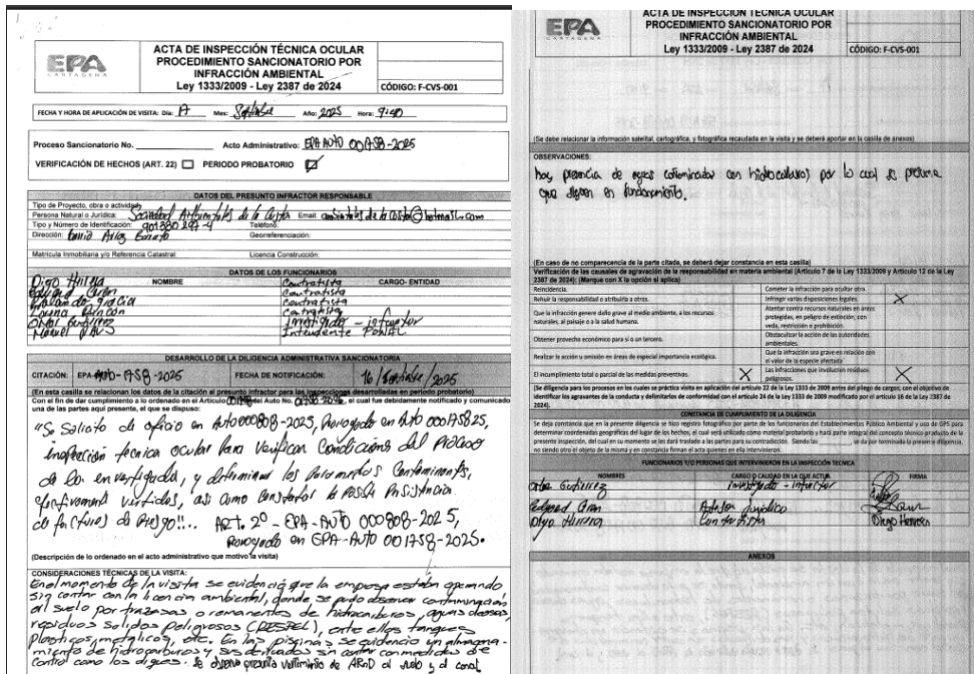 EPA
CARTAGENA
ACTA DE INSPECCIÓN TÉCNICA OCULAR
PROCEDIMIENTO SANCIONATORIO POR
INFRACCIÓN AMBIENTAL
Ley 1333/2009 - Ley 2387 de 2024
CÓDIGO: F-CVS-001
FECHA Y HORA DE APLICACIÓN DE VISITA: Día: 17 Mes: Septiembre Año: 2025 Hora: 9:40
Proceso Sancionatorio No. Acto Administrativo: EPA AUTO 001758-2025
VERIFICACIÓN DE HECHOS (ART. 22) PERIODO PROBATORIO
DATOS DEL PRESUNTO INFRACTOR RESPONSABLE
Tipo de Proyecto, obra o actividad
Persona Natural o Jurídica: Sociedad Ambientales de la Costa Email: ambientales de la costa@hotmail.com
Tipo y Número de Identificación: 901380297-4 Teléfono:
Dirección: Barrio Arroz Barato Georreferenciación:
Matrícula Inmobiliaria y/o Referencia Catastral: Licencia Construcción:
DATOS DE LOS FUNCIONARIOS
NOMBRE CARGO- ENTIDAD
Diego Herrera Contratista
Contratista
Contratista
Rincon Contratista
Gutierrez Investigado - infractor
Intendente Ponal
DESARROLLO DE LA DILIGENCIA ADMINISTRATIVA SANCIONATORIA
CITACIÓN: EPA-Auto-1758-2025 FECHA DE NOTIFICACIÓN: 16/Septiembre/2025
(En esta casilla se relacionan los datos de la citación al presunto infractor para las inspecciones desarrolladas en periodo probatorio)
Con el fin de dar cumplimiento a lo ordenado en el Artículo del Auto No. el cual fue debidamente notificado y comunicado
una de las partes aquí presente, el que se dispuso:
"Se Solicito de oficio en Auto000808-2025, Prorrogado en Auto 00175825,
inspección tecnica ocular para verificar Condiciones del Predio
de la investigada, y determinar los Parametros Contaminantes,
efectivamente vertidos, asi como constatar la posible Persistencia
de factores de riesgo!!... ART. 2º - EPA - AUTO 000808-2025,
Prorrogado en EPA-Auto 001758-2025.
(Descripción de lo ordenado en el acto administrativo que motivo la visita)
CONSIDERACIONES TÉCNICAS DE LA VISITA:
En el momento de la visita se evidenció que la empresa estaba operando
sin contar con la licencia ambiental, donde se pudo observar contaminación
al suelo por trazas o remanentes de hidrocarburos, aguas oleosas,
residuos solidos peligrosos (RESPEL), entre ellos tanques
plasticos, metalicos, etc. En las piscinas se evidencio un almacena-
miento de hidrocarburos y sus derivados sin contar con medidas de
control como los diques. Se observo presunto vertimiento de ARnD al suelo y al canal
EPA
CARTAGENA
ACTA DE INSPECCIÓN TÉCNICA OCULAR
PROCEDIMIENTO SANCIONATORIO POR
INFRACCIÓN AMBIENTAL
Ley 1333/2009 - Ley 2387 de 2024
CÓDIGO: F-CVS-001
(Se debe relacionar la información satelital, cartográfica, y fotográfica recaudada en la visita y se deberá aportar en la casilla de anexos)
OBSERVACIONES:
hay presencia de aguas contaminadas con hidrocarburos por lo cual se presume
que siguen en funcionamiento.
(En caso de no comparecencia de la parte citada, se deberá dejar constancia en esta casilla)
Verificación de las causales de agravación de la responsabilidad en materia ambiental (Artículo 7 de la Ley 1333/2009 y Artículo 12 de la Ley
2387 de 2024): (Marque con X la opción si aplica)
Reincidencia. Cometer la infracción para ocultar otra.
Rehuir la responsabilidad o atribuirla a otros. Infringir varias disposiciones legales. X
Que la infracción genere daño grave al medio ambiente, a los recursos
naturales, al paisaje o a la salud humana.
Atentar contra recursos naturales en áreas
protegidas, en peligro de extinción, con
veda, restricción o prohibición.
Obtener provecho económico para sí o un tercero. Obstaculizar la acción de las autoridades
ambientales.
Realizar la acción u omisión en áreas de especial importancia ecológica. Que la infracción sea grave en relación con
el valor de la especie afectada
El incumplimiento total o parcial de las medidas preventivas. X Las infracciones que involucren residuos
peligrosos. X
(Se diligencia para los procesos en los cuales se práctica visita en aplicación del artículo 22 de la Ley 1333 de 2009 antes del pliego de cargos, con el objetivo de
identificar los agravantes de la conducta y delimitarlos de conformidad con el artículo 24 de la Ley 1333 de 2009 modificado por el artículo 16 de la Ley 2387 de
2024).
CONSTANCIA DE CUMPLIMIENTO DE LA DILIGENCIA
Se deja constancia que en la presente diligencia se hizo registro fotográfico por parte de los funcionarios del Establecimiento Público Ambiental y uso de GPS para
determinar coordenadas geográficas del lugar de los hechos, el cual será utilizado como material probatorio y hará parte integral del concepto técnico producto de la
presente inspección, del cual en su momento se les dará traslado a las partes para su contradicción. Siendo las se da por terminada la presente diligencia,
no siendo otro el objeto de la misma y en constancia firman el acta quienes en ella intervinieron.
FUNCIONARIOS Y/O PERSONAS QUE INTERVINIERON EN LA INSPECCIÓN TÉCNICA
NOMBRES CARGO O CALIDAD EN LA QUE ACTUA FIRMA
Gutierrez Investigado - infractor
Asesor Juridico
Diego Herrera Contratista Diego Herrera
ANEXOS